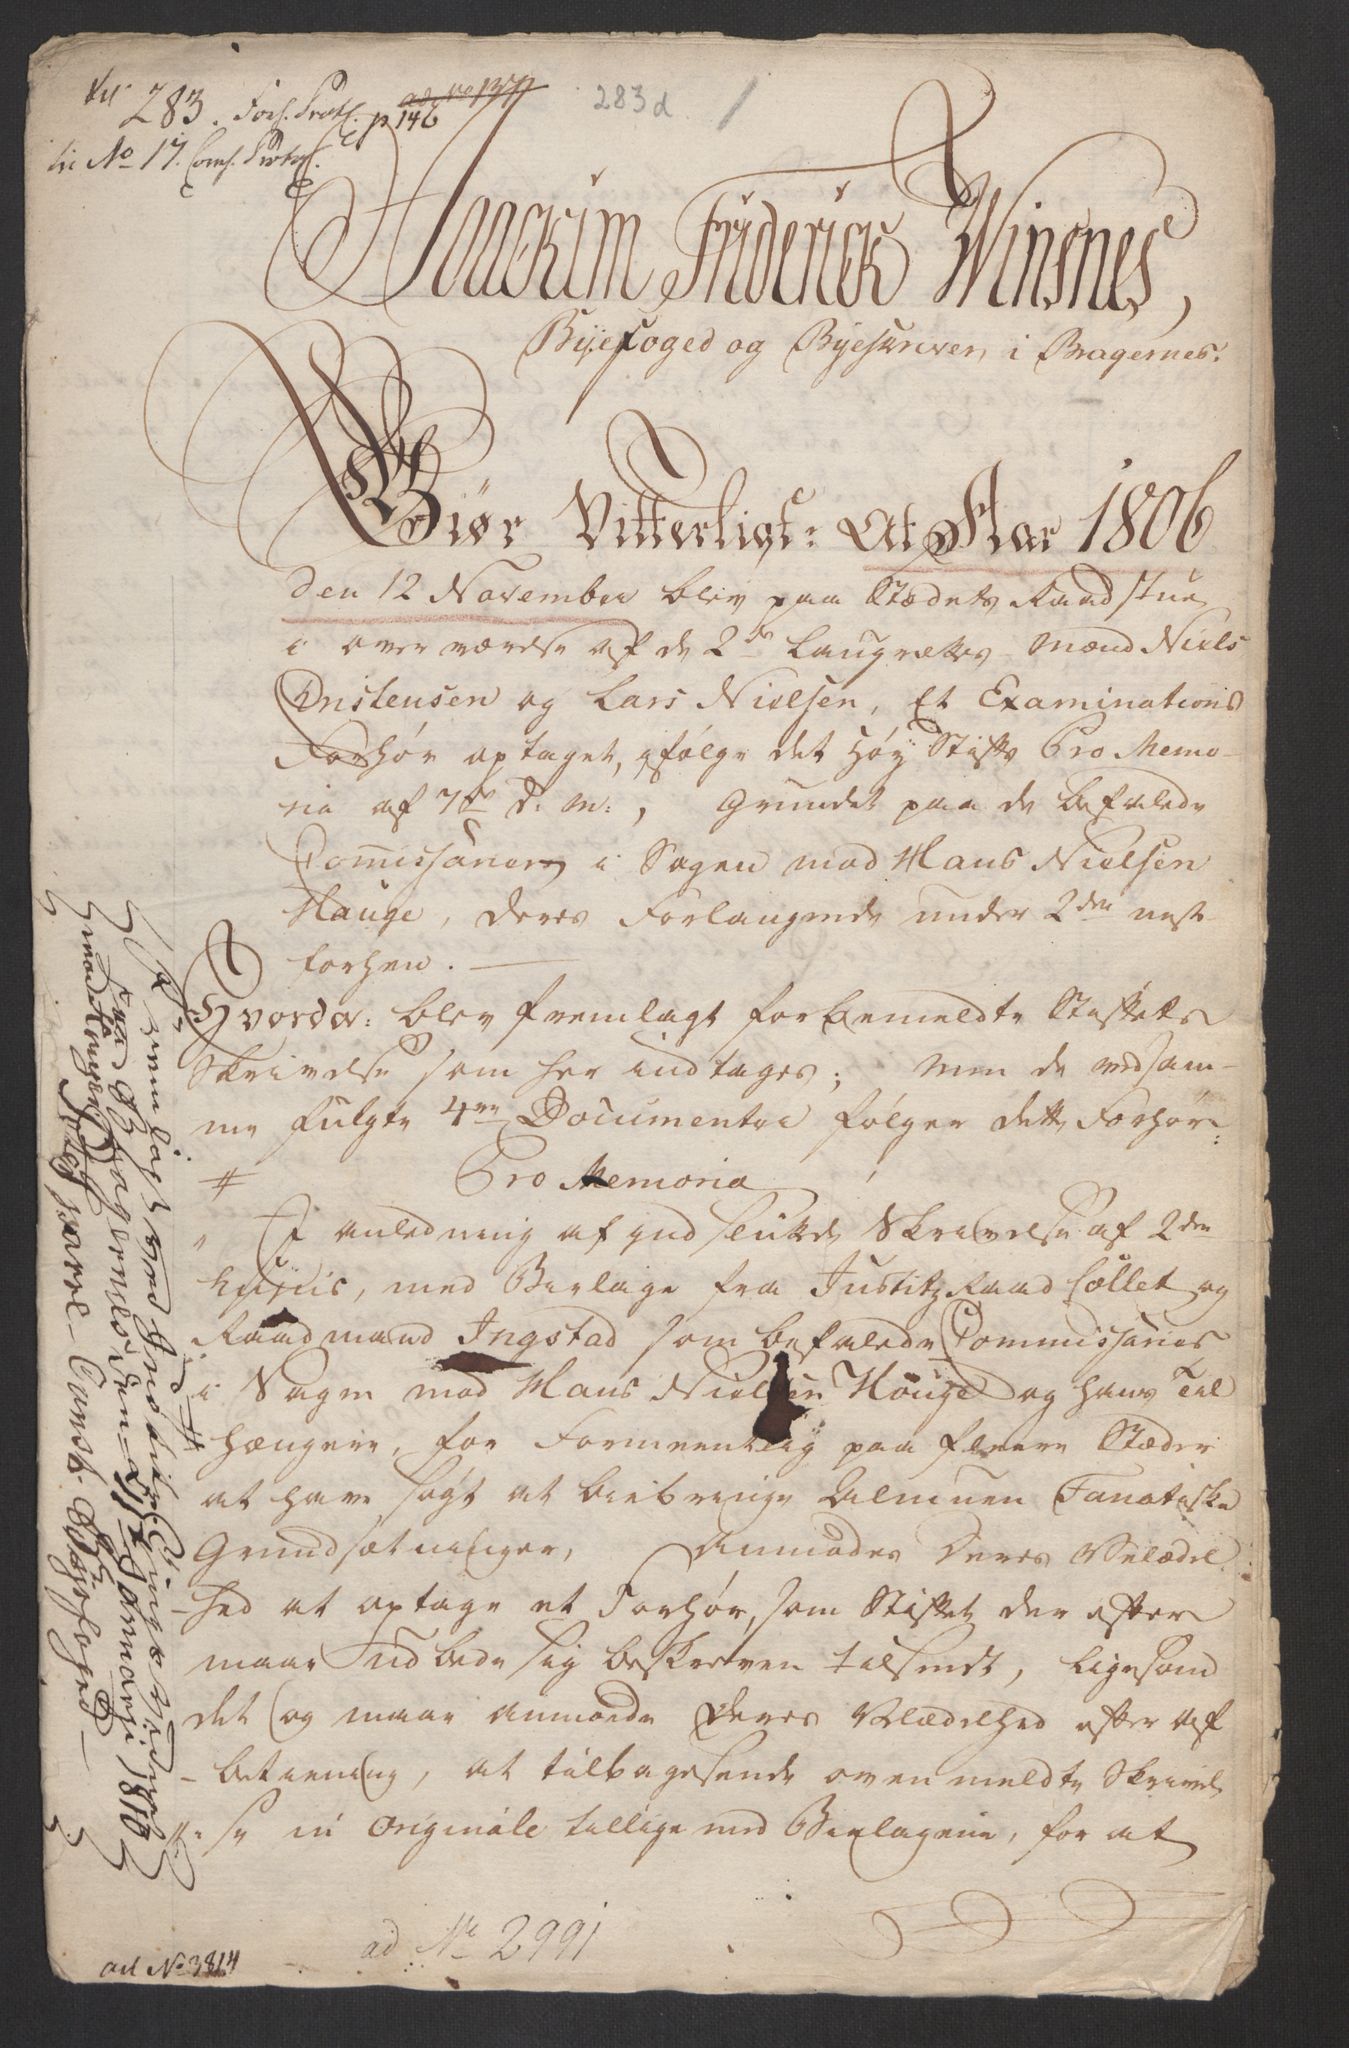 283. Forh. Protc. p 146
ad No 1371
283 d
No 17. Coms. Protoc.
Joackim Friderick Winsnes,
Byefoged og Byeskriver i Bragernes.
Giør Vitterligt: At Aar 1806
den 12 November blev paa Stædets Raadstue
i overværelse af de 2de Laugrettes Mænd Niels
Christensen og Lars Nielsen, Et Examinations
Forhør optaget, ifølge det Høy Stifts Pro Memo-
ria af 7de d: M:, Grundet paa de befalede
Commissairer i Sagen mod Hans Nielsen
Hauge, deres Forlangende under 2den nest
forhen. —
Hvorda: blev fremlagt forbemeldte Stiftets
Skrivelse som her indtages; Men de medsam-
me fulgte 4re Documenter følger dette Forhør:
# Pro Memoria
„ I anledning af indsendte Skrivelse af 2den
hujus, med Bielage fra Justitz Raad Collet og
Raadmand Ingstad som befalede Commissaries
i Sagen mod Hans Nielsen Houge og hans Til
hængere, for Formeentlig paa fleere Stæder
at have søgt at bibringe Almuen Fanatiske
Grundsætninger, Anmodes Deres Velædel
hed at optage et Forhør, som Stiftet der efter
maae Udbede sig beskreven tilsendt, ligesom
det og maae anmode Deres Velædelhed efter af
- betiening, at tilbagesende ovenmeldte Skrivel
se in Originale tillige med Bielagene, for at
Fremlagt ved Inqvisitions
paa Bragernes den Januarii 1810
ad No 2991
ad No 3814